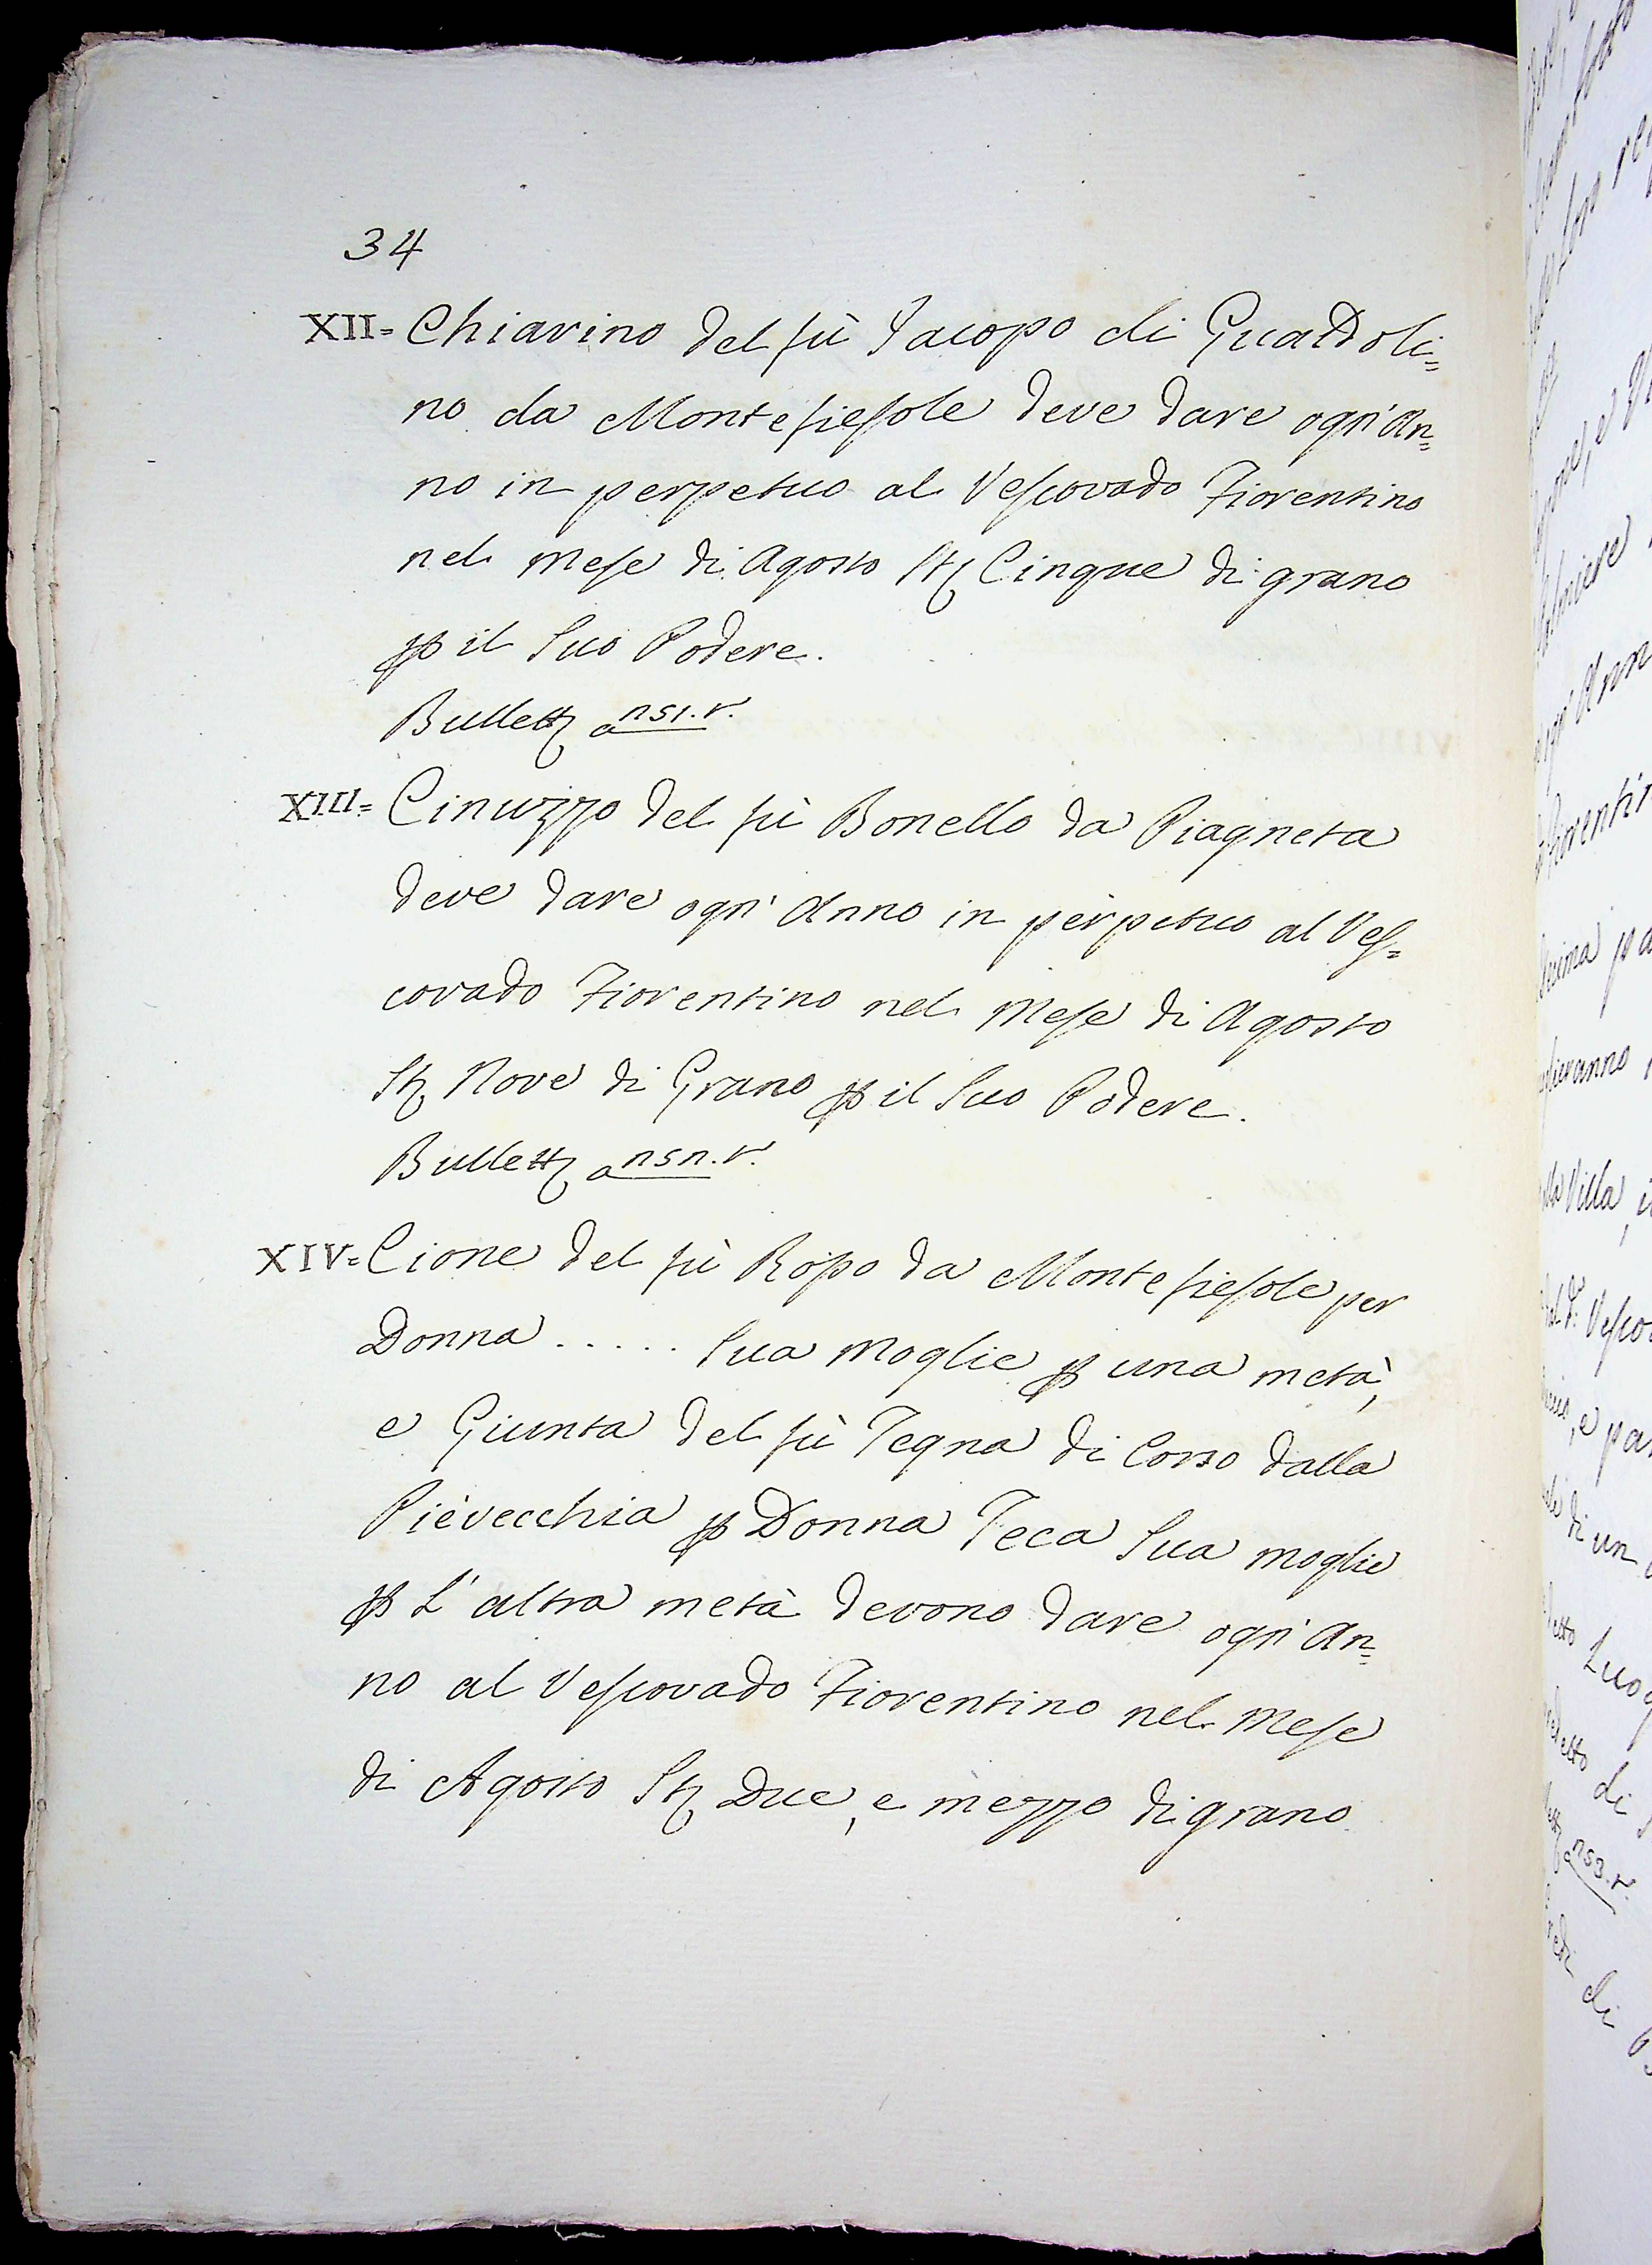 34
XII= Chiarino del fù Jacopo di Gualdoli=
no da Montefiesole deve dare ogn'An=
no in perpetuo al Vescovado Fiorentino
nel Mese di Agosto St. Cinque di grano
p il Suo Podere.
Bullett. a n51.r.
XIII= Cinuzzo del fù Bonello da Piagneta
deve dare ogn'Anno in perpetuo al Ves=
covado Fiorentino nel Mese di Agosto
St. Nove di Grano p il Suo Podere.
Bullett. a
XIV= Cione del fù da Montefiesole per
Donna ..... Sua Moglie p una metà,
e Giunta del fù Tegna di Corso dalla
Pievecchia p Donna Teca Sua moglie
p L'altra metà devono dare ogn'An=
no al Vescovado Fiorentino nel Mese
di Agosto St. Due, e mezzo di grano